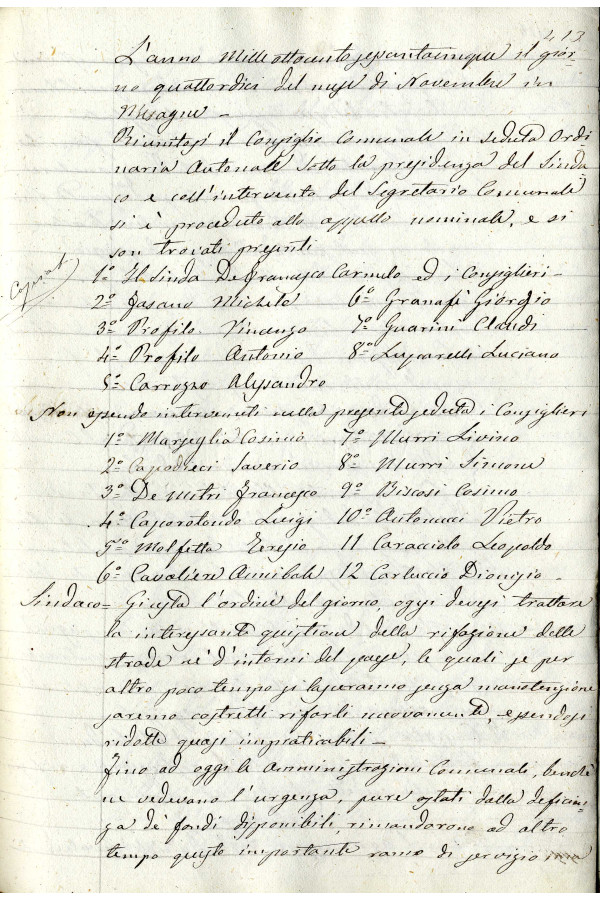 413
L'anno mille ottocento sessantacinque il gior-
no quattordici del mese di Novembre in
Mesagne -
Riunitosi il Consiglio Comunale in seduta Ordi
naria Autonale sotto la presidenza del Sinda
co e coll'intervento del Segretario Comunale
si è proceduto allo appello nominale, e si
son trovati presenti
1º Il Sinda De Francesco Carmelo ed i Consiglieri -
2º Fasano Michele 6º Granafè Giorgio
3º Profilo Vincenzo 7º Guarini Claudi
4º Profilo Antonio 8º Luparelli Luciano
5º Carrozzo Alessandro
Non essendo intervenuti nella presente seduta i Consiglieri
1º Marseglia Cosimo 7º Murri Livino
2º Capodieci Saverio 8º Murri Simone
3º De Mitri Francesco 9º Biscosi Cosimo
4º Caporotondo Luigi 10º Antonucci Pietro
5º Molfetta Teresio 11 Caracciolo Leopoldo
6º Cavaliere Annibale 12 Carluccio Dionisio -
Sindaco = Giusta l'ordine del giorno, oggi devesi trattare
la interessante quistione della rifazione delle
strade ne' d'intorni del paese, le quali se per
altro poco tempo si lasceranno senza manotenzione
saremo costretti rifarli nuovamente, essendosi
ridotte quasi impraticabili -
Fino ad oggi le Amministrazioni Comunali, benchè
ne vedevano l'urgenza, pure ostati dalla deficien-
za de' fondi disponibili, rimandarono ad altro
tempo questo importante ramo di servizio